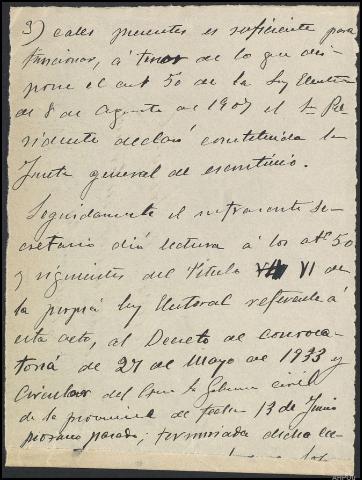 3) cales presentes es suficiente para
funcionar, á tenor de lo que dis-
pone el art 50 de la Ley Electoral
de 8 de Agosto de 1907 el Sr Pre-
sidente declaró constituida la
Junta general de escrutinio.
Seguidamente el infrascrito Se-
cretario dió lectura á los artº 50
y siguientes del Título VI de
la propia ley Electoral referente á
este acto, al Decreto de convoca-
toria de 27 de Mayo de 1933 y
Circular del Gobierno civil
de la provincia de fecha 13 de Junio
proximo pasado; terminada dicha lec-
AHPOU